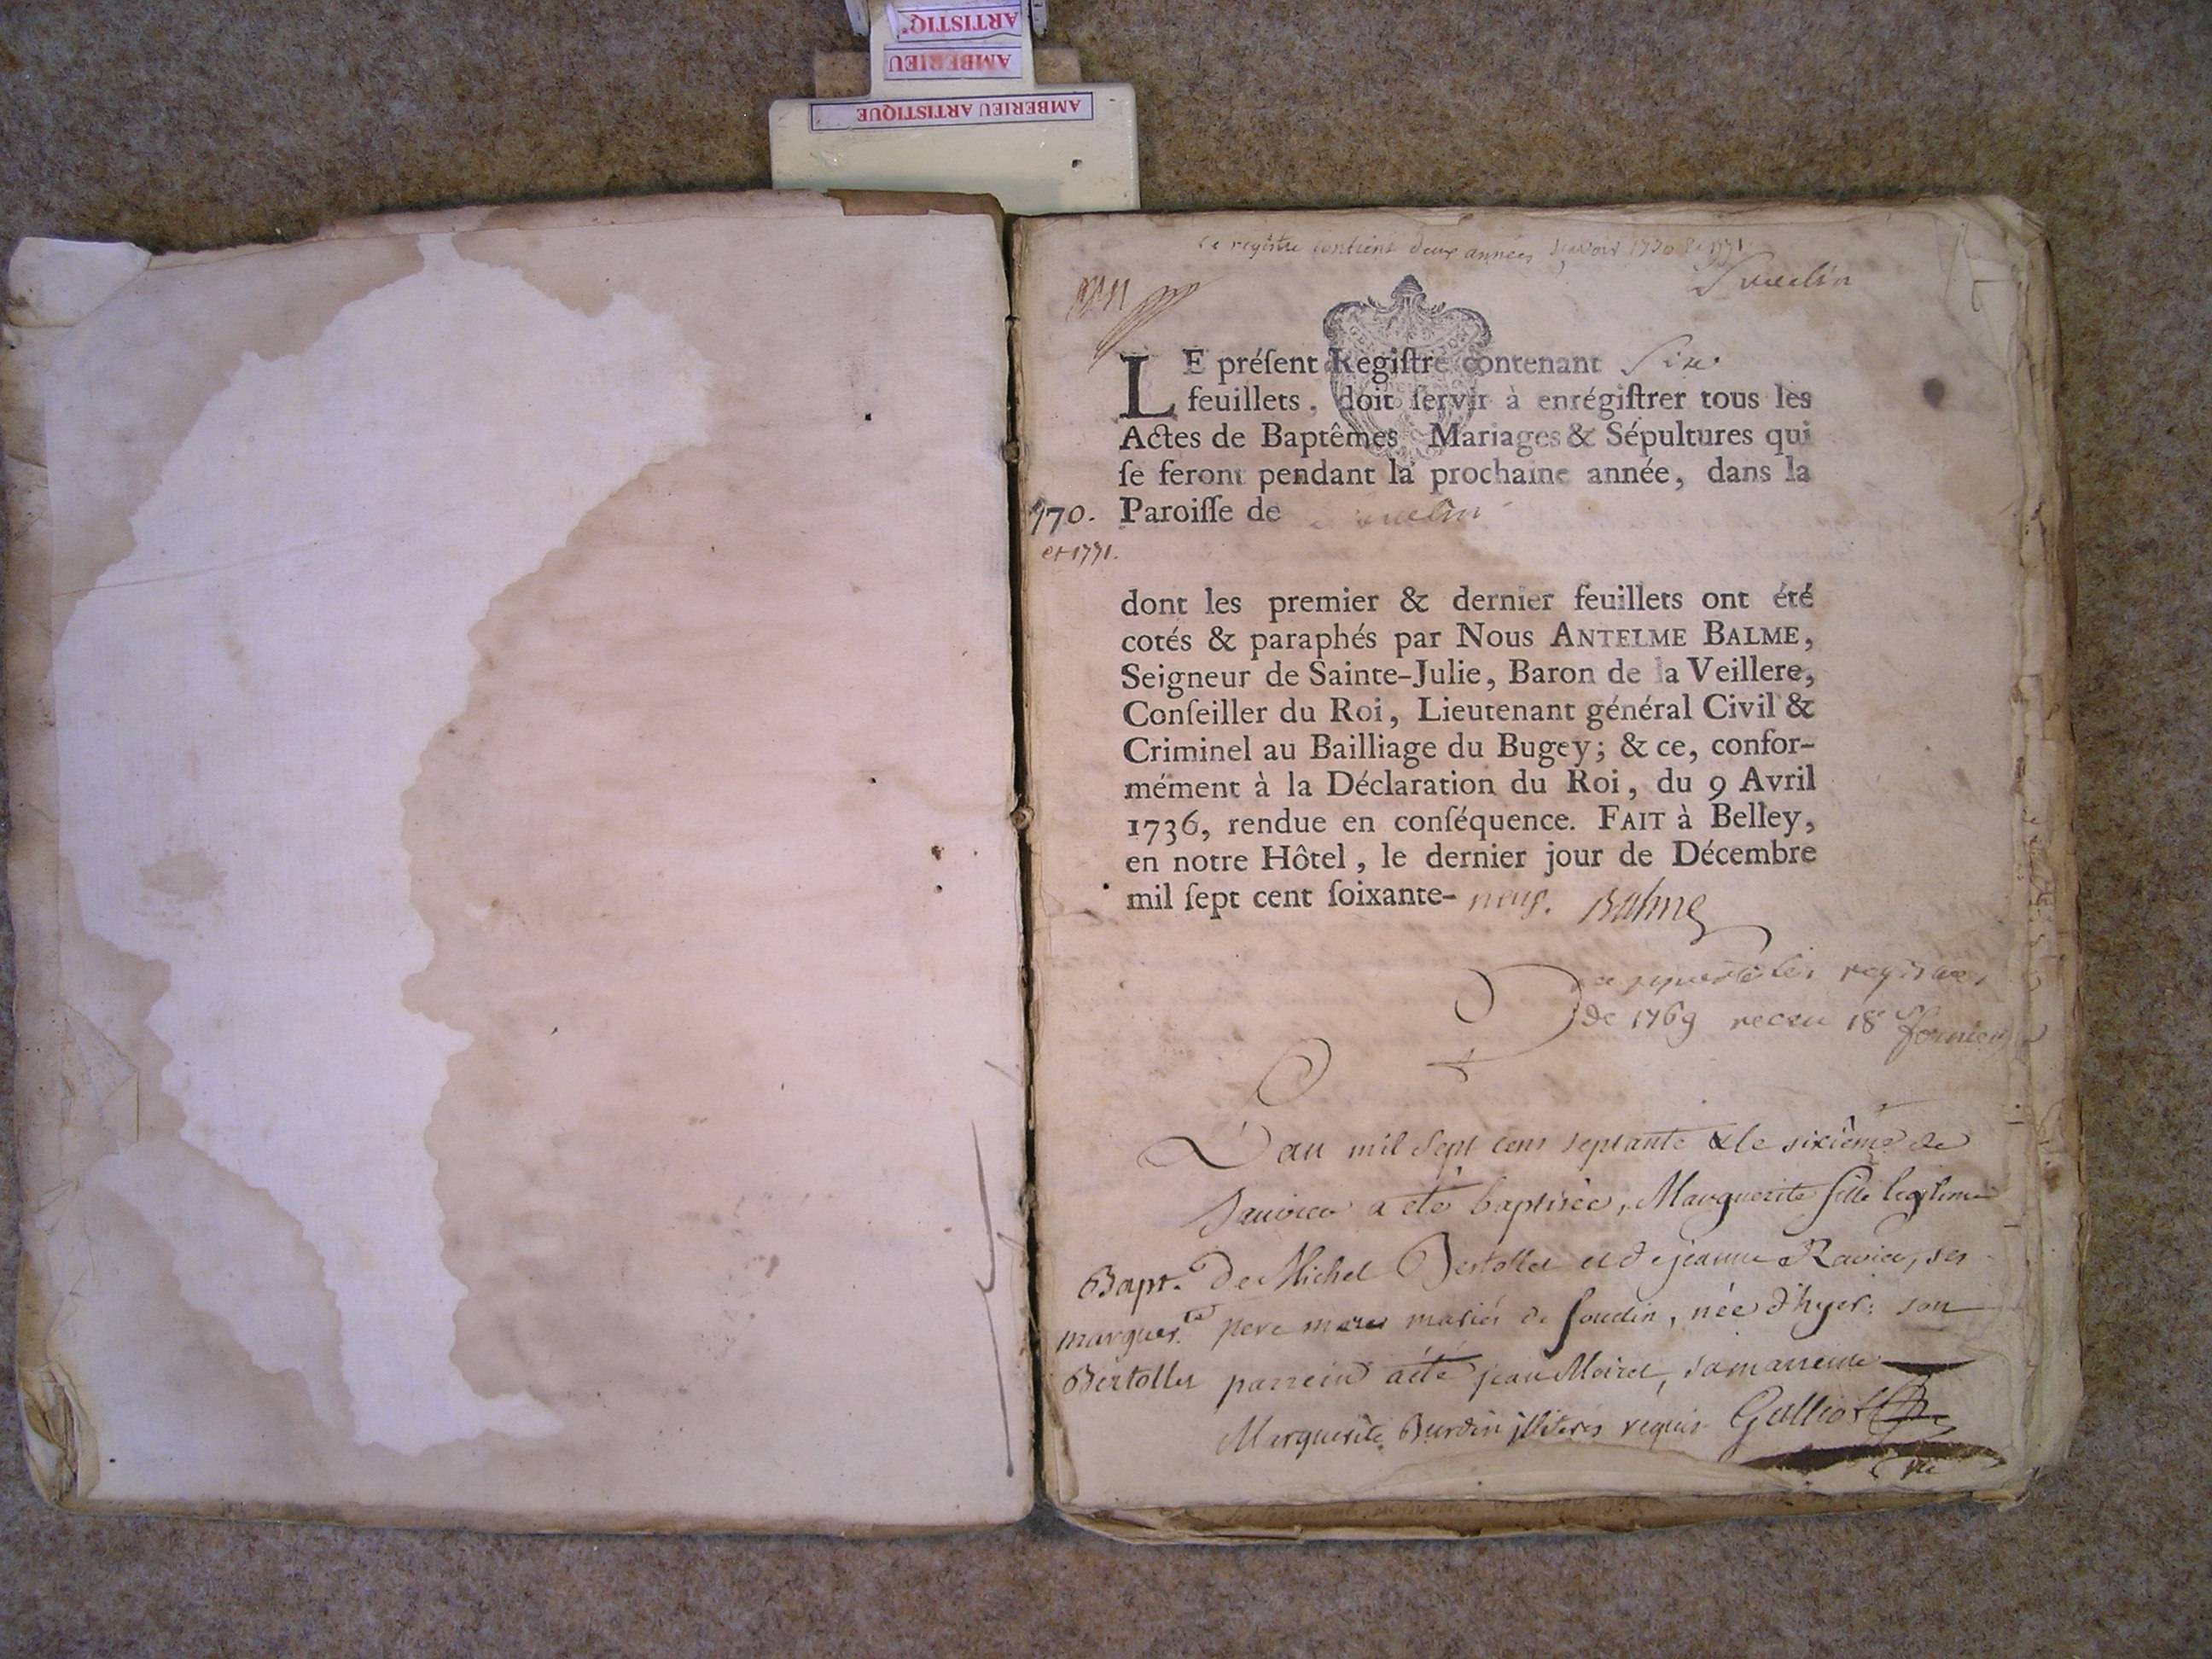 ARTISTIQ'
AMBERIEU
AMBERIEU ARTISTIQUE
ce registre contient deux années sçavoir 1770 & 1771.
LE préſent Regiſtre contenant Six
feuillets, doit ſervir à enrégiſtrer tous les
Actes de Baptêmes, Mariages & Sépultures qui
ſe feront pendant la prochaine année, dans la
770. Paroiſſe de
et 1771.
dont les premier & dernier feuillets ont été
cotés & paraphés par Nous ANTELME BALME,
Seigneur de Sainte-Julie, Baron de la Veillere,
Conſeiller du Roi, Lieutenant général Civil &
Criminel au Bailliage du Bugey; & ce, confor-
mément à la Déclaration du Roi, du 9 Avril
1736, rendue en conſéquence. FAIT à Belley,
en notre Hôtel, le dernier jour de Décembre
mil ſept cent ſoixante-neuf. Balme
registres
de 1769 receu 18
L'an mil sept cens septante & le sixieme de
Janvier a été baptisée, Marguerite fille legitime
de Michel Bertollet et de jeanne Ravier, ses
pere mere mariés de Soudin, née d'hyer: son
parrein a été jean Moiret, sa marreine
Marguerite Burdin illiteres requis Galliot
Bapt.
marguer.te
Bertollet